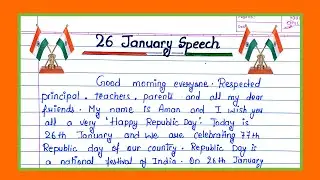 26 January Speech
Good morning everyone. Respected
principal, teachers, parents and all my dear
friends. My name is Aman and I wish you
all a very 'Happy Republic Day'. Today is
26th January and we are celebrating 77th
Republic day of our country. Republic Day is
a national festival of India. On 26th January